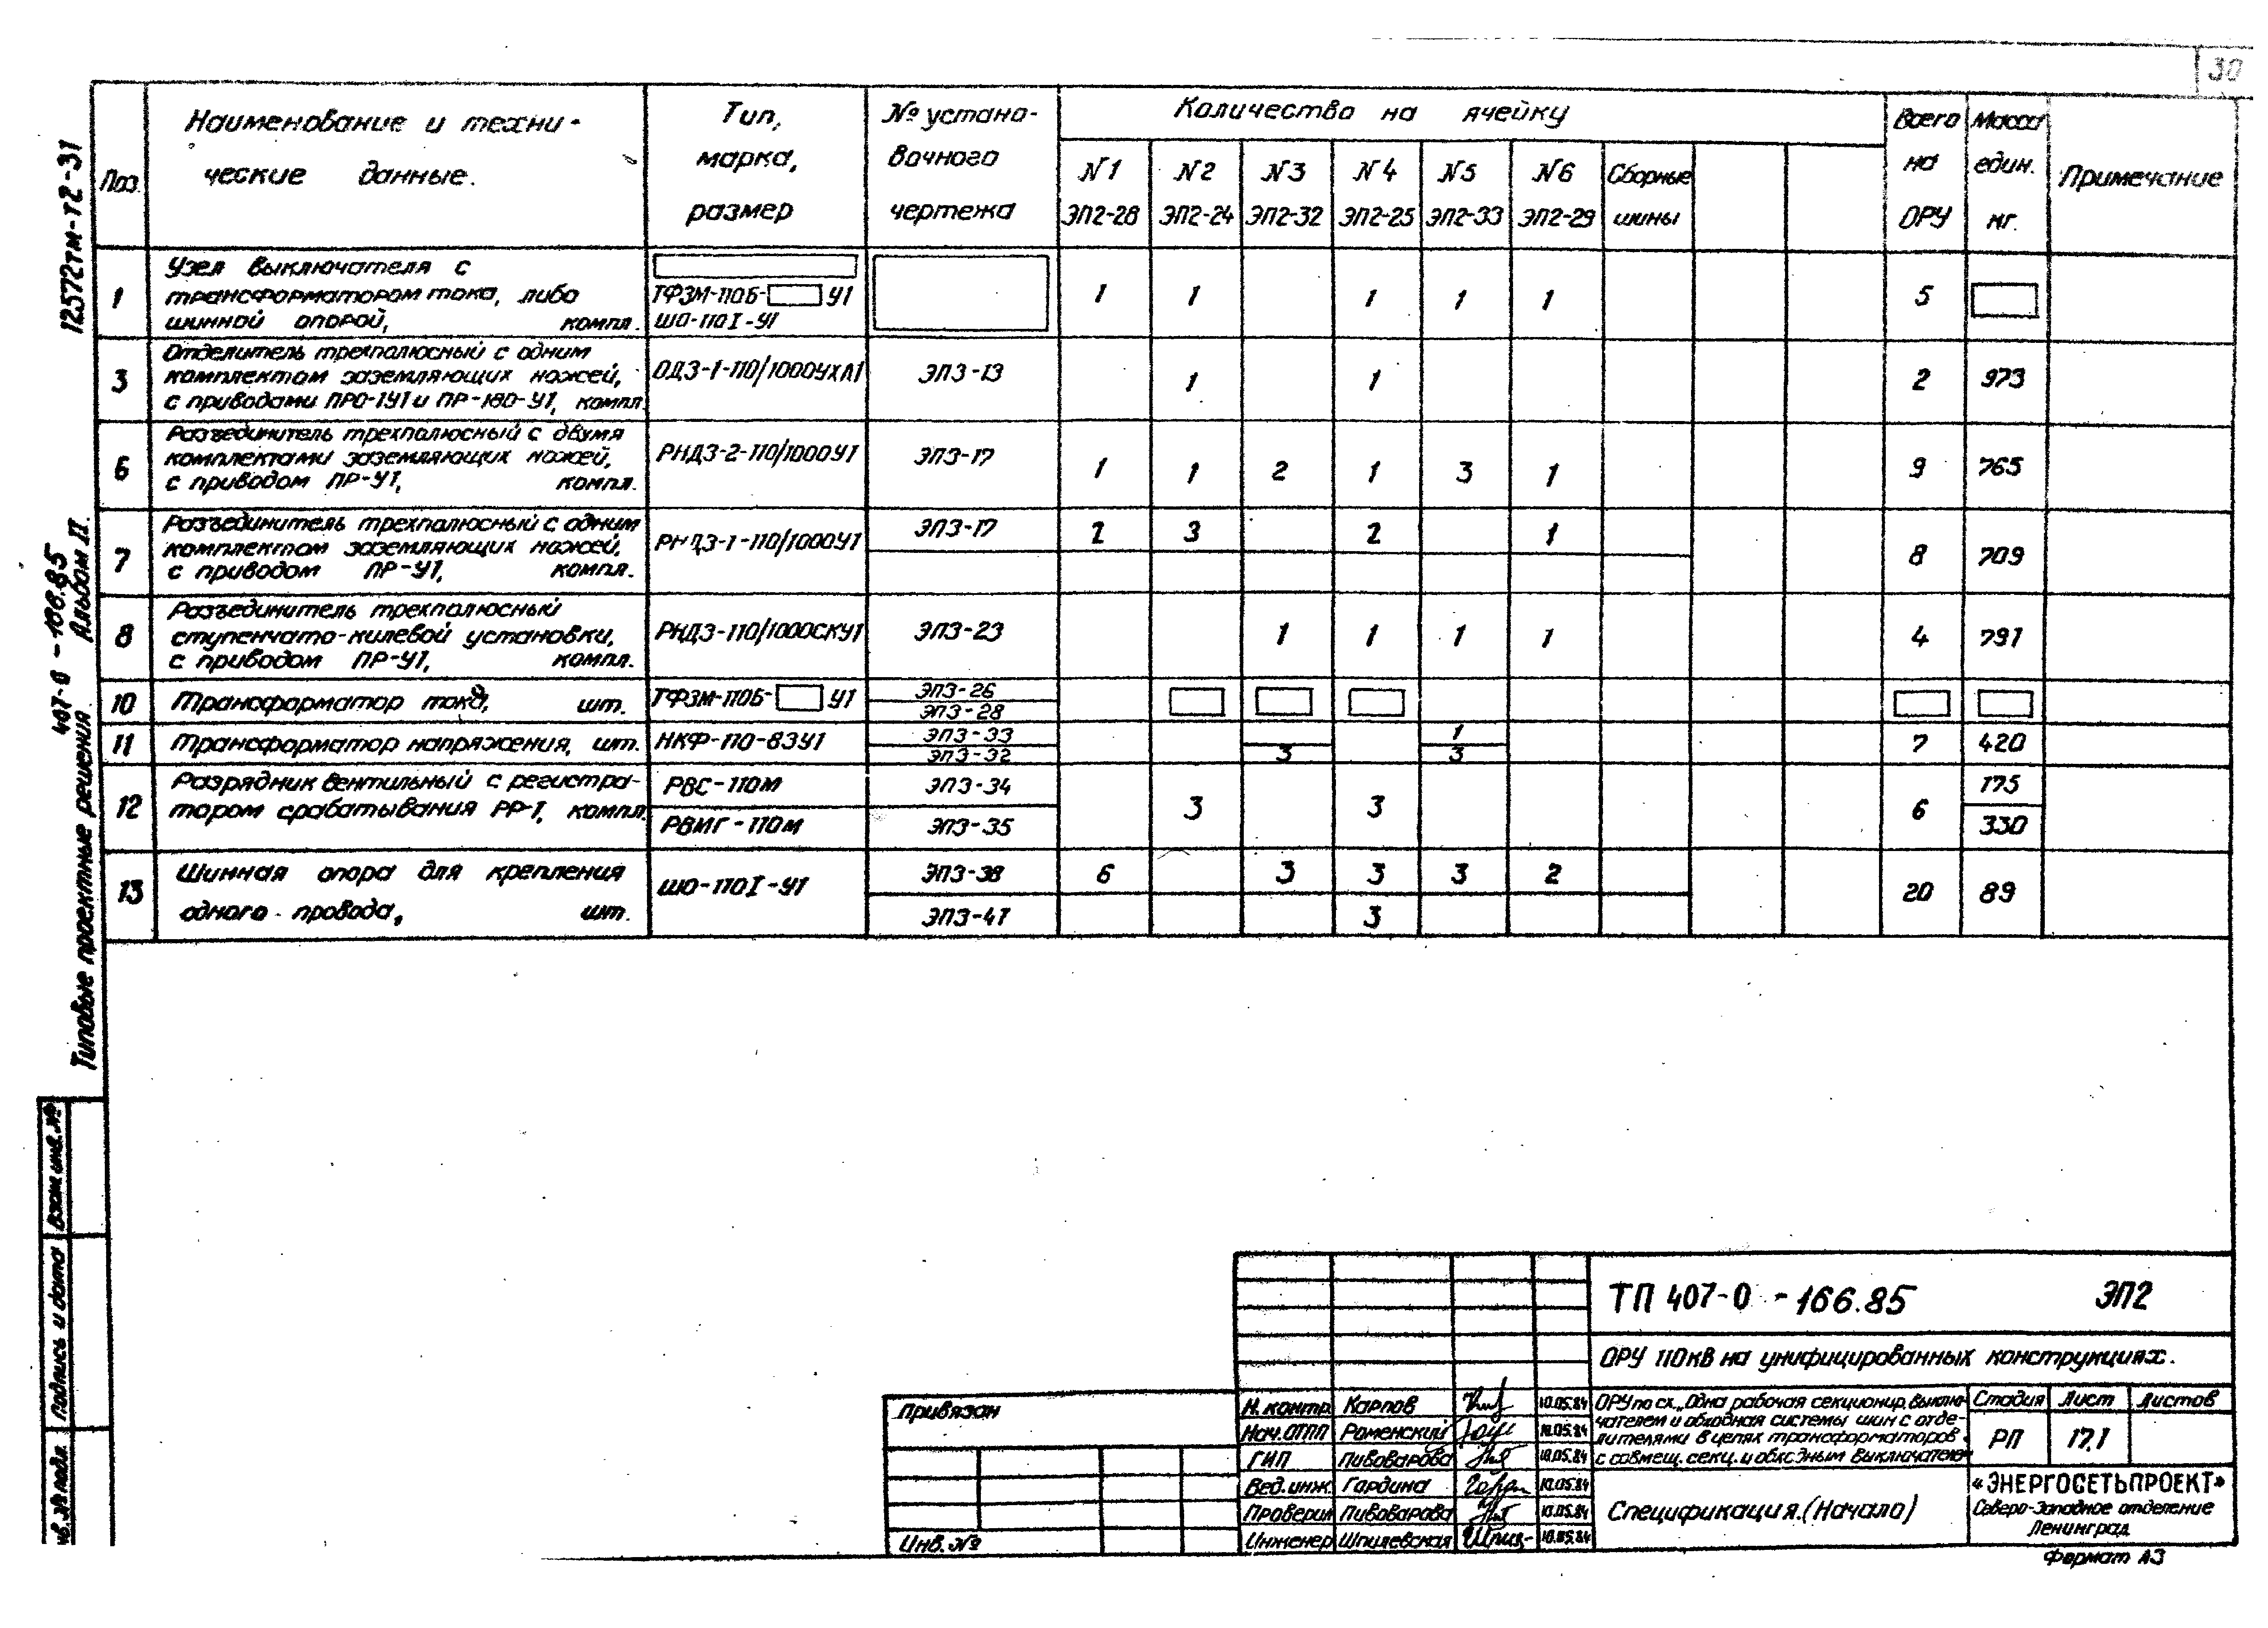 30
12572тм-т2-31
407-0-166.85
Альбом II.
Типовые проектные решения.
Поз.
Наименование и техни-
ческие данные.
Тип,
марка,
размер
№ устано-
вочного
чертежа
Количество на ячейку
N1
ЭП2-28
N2
ЭП2-24
N3
ЭП2-32
N4
ЭП2-25
N5
ЭП2-33
N6
ЭП2-29
Сборные
шины
Всего
на
ОРУ
Масса
един.
кг.
Примечание
1
Узел выключателя с
трансформатором тока, либо
шинной опорой, компл.
ТФЗМ-110Б- У1
ШО-110I-У1
1 1 1 1 1 5
3
Отделитель трехполюсный с одним
комплектом заземляющих ножей,
с приводами ПРО-1У1 и ПР-180-У1, компл.
ОДЗ-1-110/1000УХЛ1 ЭП3-13 1 1 2 973
6
Разъединитель трехполюсный с двумя
комплектами заземляющих ножей,
с приводом ПР-У1, компл.
РНДЗ-2-110/1000У1 ЭП3-17 1 1 2 1 3 1 9 765
7
Разъединитель трехполюсный с одним
комплектом заземляющих ножей,
с приводом ПР-У1, компл.
РНДЗ-1-110/1000У1 ЭП3-17 2 3 2 1 8 709
8
Разъединитель трехполюсный
ступенчато-килевой установки,
с приводом ПР-У1, компл.
РНДЗ-110/1000СКУ1 ЭП3-23 1 1 1 1 4 791
10 Трансформатор тока, шт. ТФЗМ-110Б- У1 ЭП3-26
ЭП3-28
11 Трансформатор напряжения, шт. НКФ-110-83У1 ЭП3-33 1 7 420
ЭП3-32 3 3
12
Разрядник вентильный с регистра-
тором срабатывания РР-1, компл.
РВС-110М ЭП3-34 175
РВМГ-110М ЭП3-35 330
3 3 6
13
Шинная опора для крепления
одного провода, шт.
ШО-110I-У1
ЭП3-38 6 3 3 3 2
ЭП3-41 3
20 89
Взам. инв. №
Подпись и дата
Инв. № подл.
Привязан
Инв. №
ТП 407-0-166.85 ЭП2
ОРУ 110кВ на унифицированных конструкциях.
Н. контр. Карпов 10.05.84
Нач. ОТПП Роменский 10.05.84
ГИП Пивоварова 10.05.84
Вед. инж. Гордина 10.05.84
Проверил Пивоварова 10.05.84
Инженер Шпилевская 10.05.84
ОРУ по сх. „Одна рабочая секционир. выклю-
чателем и обходная системы шин с отде-
лителями в цепях трансформаторов
с совмещ. секц. и обходным выключателем
Стадия Лист Листов
РП 17.1
Спецификация. (Начало)
«ЭНЕРГОСЕТЬПРОЕКТ»
Северо-Западное отделение
Ленинград
Формат А3